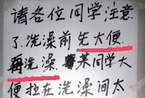 请各位同学注意
了.洗澡前先大便
再洗澡某同学大
便拉在洗澡间太